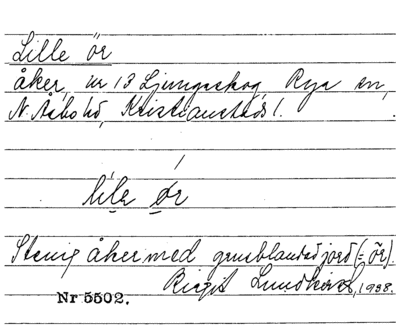 Lille ör
åker, nr 13 Ljungaskog, Rya sn,
N. Åsbo hd, Kristianstads l.
lile ör
Stenig åker med grusblandad jord (= ör).
Birgit 1938.
Nr 5502.